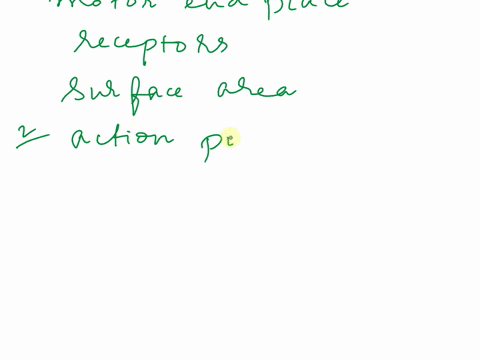 motor end plate
receptors
surface area
2 action pe